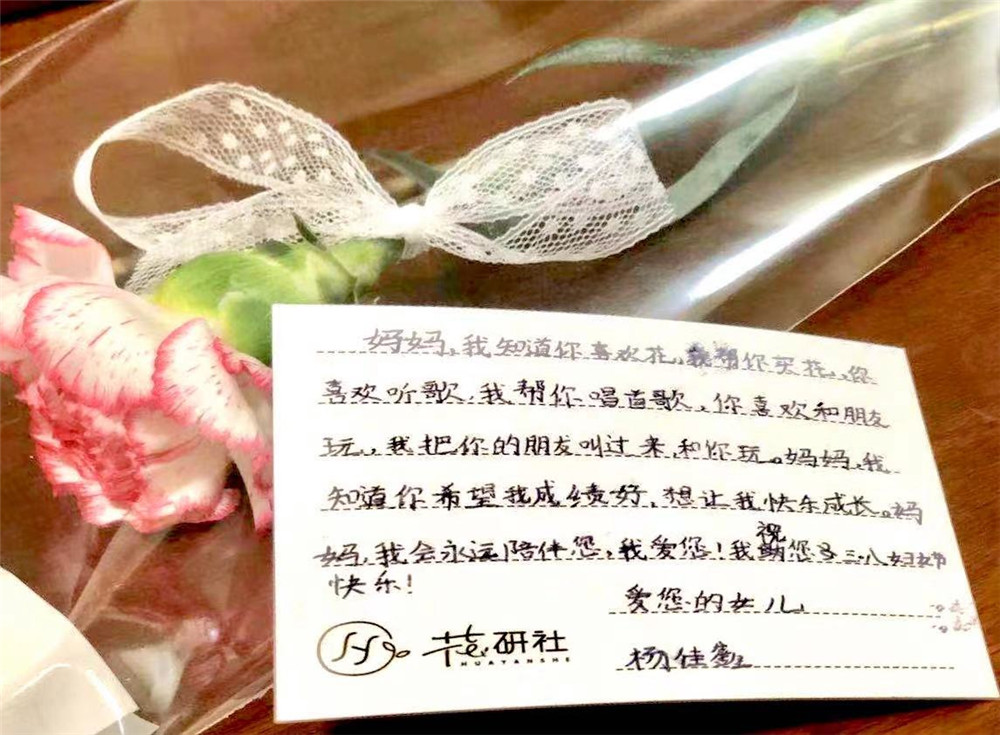 妈妈,我知道你喜欢花,我帮你买花,你
喜欢听歌,我帮你唱首歌,你喜欢和朋友
玩,我把你的朋友叫过来和你玩。妈妈,我
知道你希望我成绩好,想让我快乐成长。妈
妈,我会永远陪伴您,我爱您!我祝您三八妇女节
快乐!
爱您的女儿
杨佳
花研社
HUAYANSHE